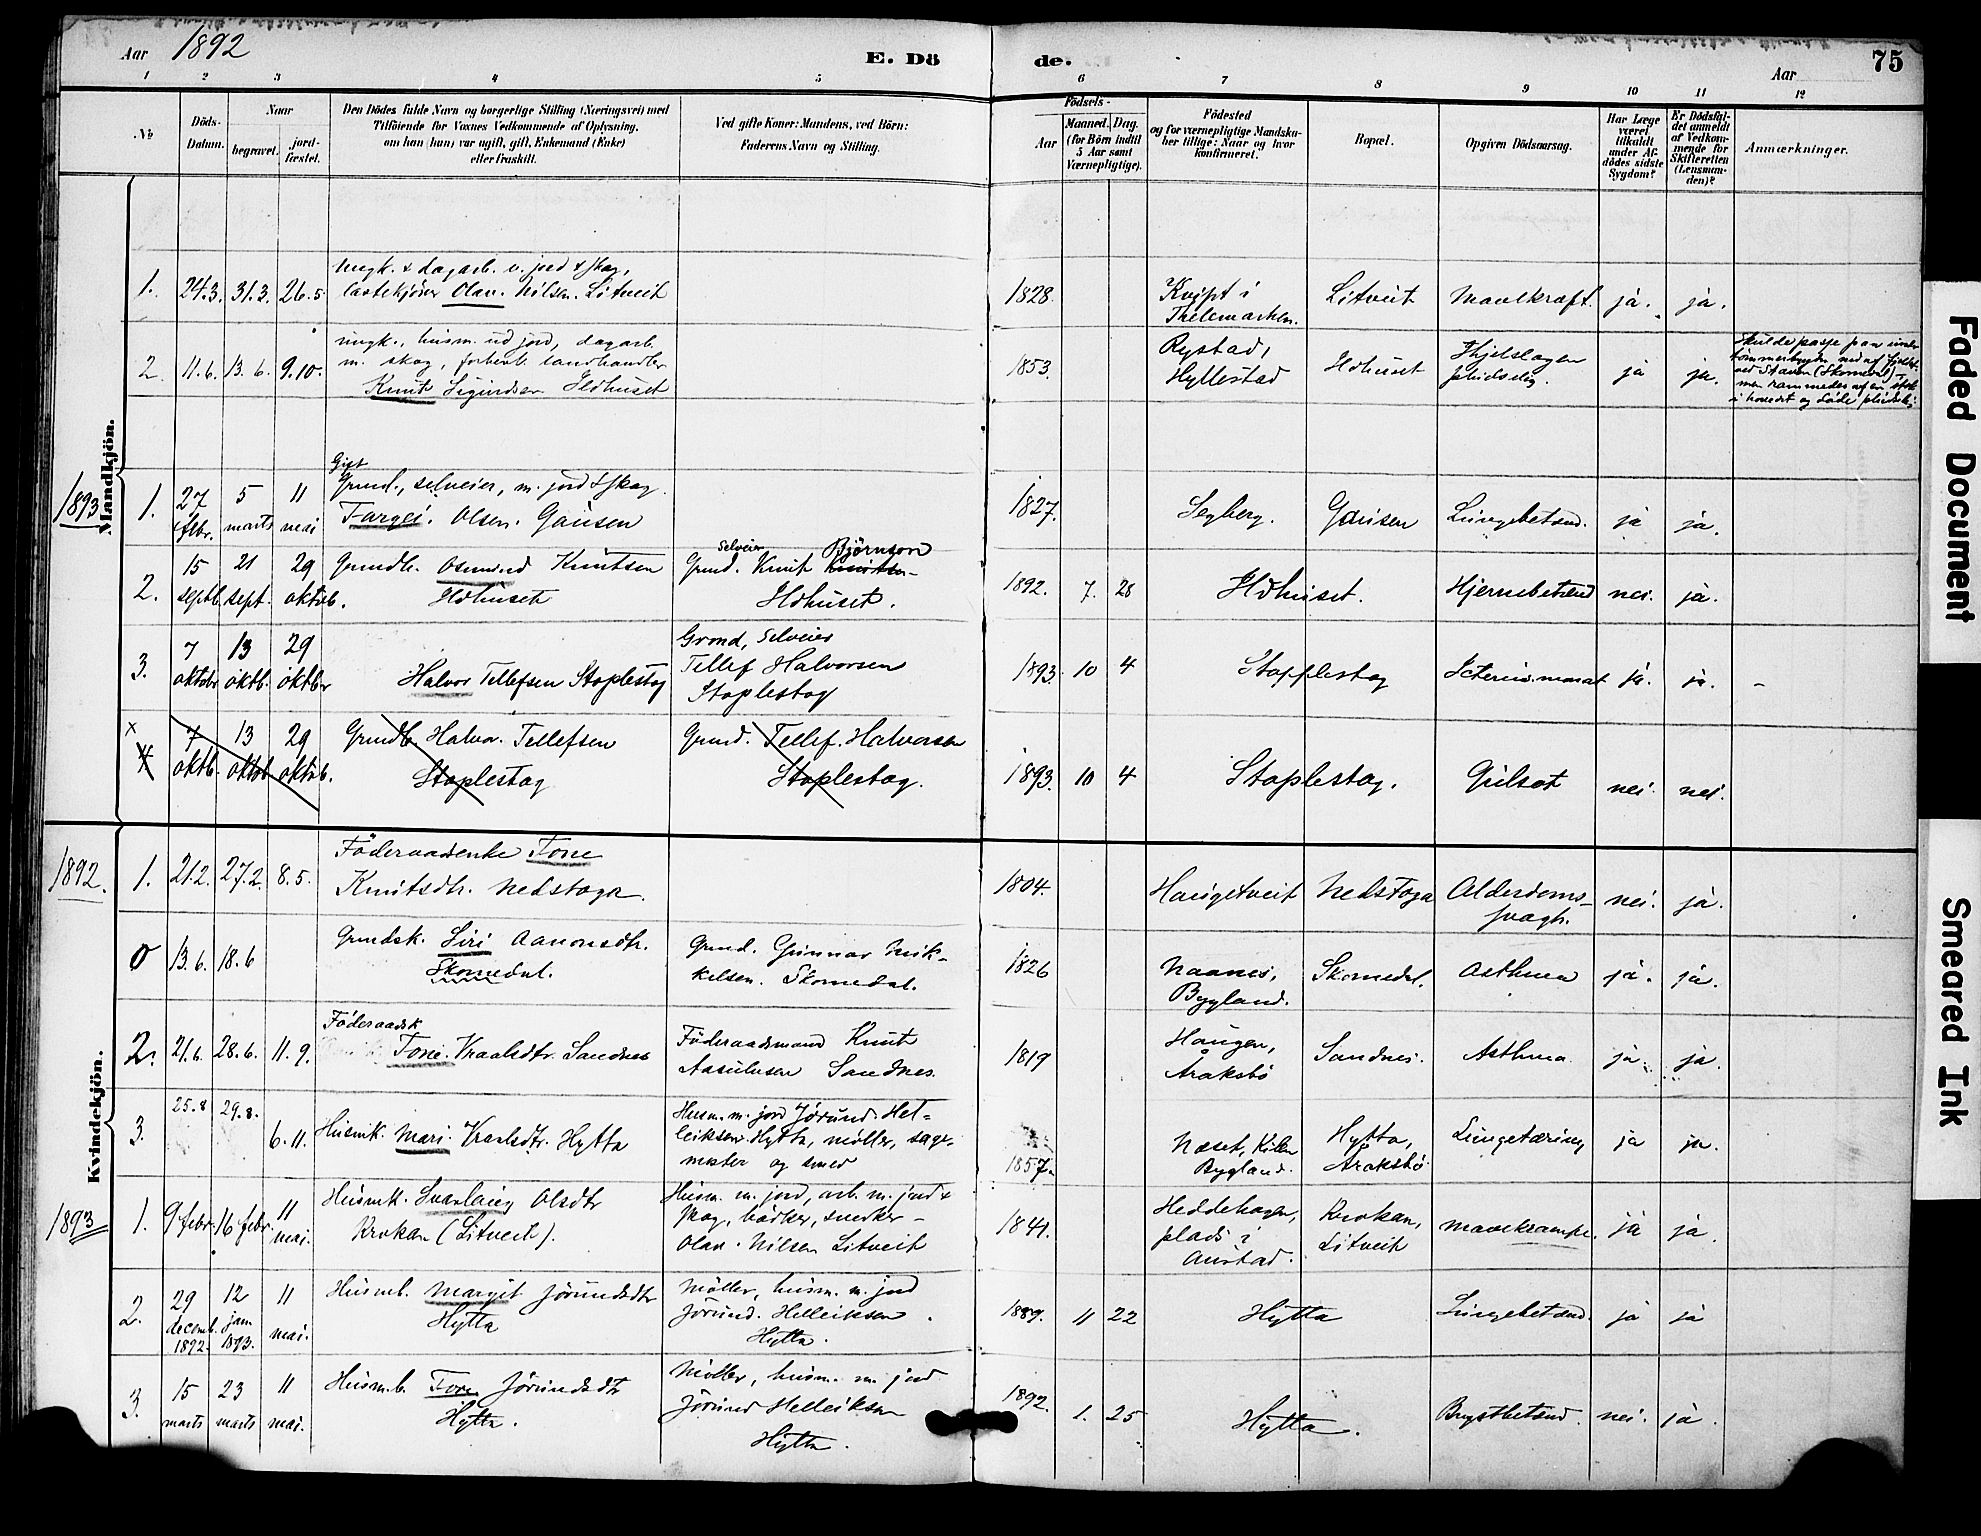 Aar 1892
E. Dö
de.
Aar
75
1 2 3 4 5 6 7 8 9 10 11 12
No
Döds-
Datum.
Naar
begravet.
jord-
fæstet.
Den Dödes fulde Navn og borgerlige Stilling (Næringsvei) med
Tilföiende for Voxnes Vedkommende af Oplysning,
om han (hun) var ugift, gift, Enkemand (Enke)
eller fraskilt.
Ved gifte Koner: Mandens, ved Börn:
Faderens Navn og Stilling.
Födsels-
Aar
Maaned.
Dag.
(for Börn indtil
5 Aar samt
Værnepligtige).
Födested
og for værnepligtige Mandska-
ber tillige: Naar og hvor
konfirmeret.
Bopæl.
Opgiven Dödsaarsag.
Har Læge
været
tilkaldt
under Af-
dödes sidste
Sygdom?
Er Dödsfal-
det anmeldt
af Vedkom-
mende for
Skifteretten
(Lensman-
den)?
Anmærkninger.
Mandkjön.
1. 24.3. 31.3. 26.5
ungk. & dagarb. v. jord & skog,
Olav. Nilsen. Litveit
1828.
i
Thelemarken.
Litveit
ja. ja.
2. 11.6. 13.6. 9.10.
ungk., husm. ud jord, dagarb.
m. skog, forhenv. landhandler
Knut Sigurdsen Hdhuset
1853.
Rystad,
Hyllestad
Hdhuset
ja ja.
ved Staven (Skomedal)
men rammedes af en stok
i hovedet og döde
1893
1. 27
febr.
5
marts
11
mai
Gift
Grund., selveier, m. jord & skog.
Targei. Olsen. Gausen
1827.
Segberg.
Gausen
Lungebetænd.
ja ja.
2.
15
septb.
21
sept.
29
oktob.
Grundb. Osmund Knutsen
Hdhuset
Selveier Björnson
Grund. Knut Knutsen
Hdhuset.
1892. 7. 28
Hdhuset.
Hjernebetænd
nei. ja.
3.
7
oktobr
13
oktb.
29
oktbr
Halvor Tellefsen Stoplestog
Grund, Selveier
Tellef Halvorsen
Stoplestog
1893. 10 4
Stopplestog
ja. ja. –
x
4
7
oktb.
13
oktob
29
oktob.
Grundb. Halvor. Tellefsen
Stoplestog
Grund. Tellef. Halvorsen
Stoplestog.
1893. 10 4
Stoplestog.
Gulsot
nei. nei.
Kvindekjön.
1892.
1. 21.2. 27.2. 8.5.
Föderaadsenke Tone
Knutsdtr. Nedstoga.
1804.
Haugetveit
Nedstoga
Alderdoms-
svagh.
nei. ja.
0 13.6. 18.6
Grundsk. Siri Aanonsdtr.
Skomedal.
Grund. Gunnar Mik-
kelsen. Skomedal.
1826
Naanes,
Bygland.
Skomedal.
Asthma
ja. ja.
2. 21.6. 28.6. 11.9.
Föderaadsk
Tone. Vraalsdtr. Sandnes
Föderaadsmand Knut
Aasulvsen Sandnes.
1819
Haugen,
Åraksbö
Sandnes.
Asthma
ja. ja
3. 25.8 29.8. 6.11.
Husmk. Mari. Vraalsdtr. Hytta
Husm. m. jord Jörund. Hel-
leiksen. Hytta, möller, sag-
mester og smed
1857.
Næset, Kilen
Bygland.
Hytta,
Åraksbö
Lungetæring
ja ja.
1893
1. 9 febr. 16 febr.
11
mai.
Husmk. Svanlaug Olsdtr
Krokan (Litveit).
Husm. m. jord, arb. m. jord &
skog, bödker, snedker –
Olav. Nilsen Litveit
1841.
Heddehagen,
plads i
Austad.
Krokan,
Litveit
Mavekrampe.
ja ja.
2.
29
decemb.
1892.
12
jan
1893.
11
mai.
Husmb. Margit Jörundsdtr
Hytta
Möller, husm. m. jord
Jörund. Helleiksen.
Hytta.
1889. 11 22
Hytta
Lungebetænd.
ja ja
3.
15
marts
23
marts
11
mai.
Husmb. Tone Jörundsdtr
Hytta.
Möller, husm. m. jord
Jörund Helleiksen
Hytta.
1892. 1. 25
Hytta.
Brystbetænd.
nei. ja.
Faded Document
Smeared Ink